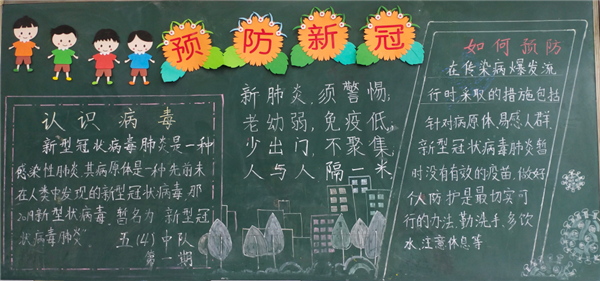 预防新冠
认识病毒
新型冠状病毒肺炎是一种
感染性肺炎,其病原体是一种先前未
在人类中发现的新型冠状病毒,那
新型状病毒,暂名为 新型冠
状病毒肺炎
五(4)中队
第一期
新肺炎,须警惕;
老幼弱,免疫低,
少出门,不聚集,
人与人 隔一米
如何预防
在传染病爆发流
行时采取的措施包括
针对病原体易感人群.
新型冠状病毒肺炎暂
时没有有效的疫苗,做好
个人防护是最切实可
行的办法.勤洗手、多饮
水、注意休息等